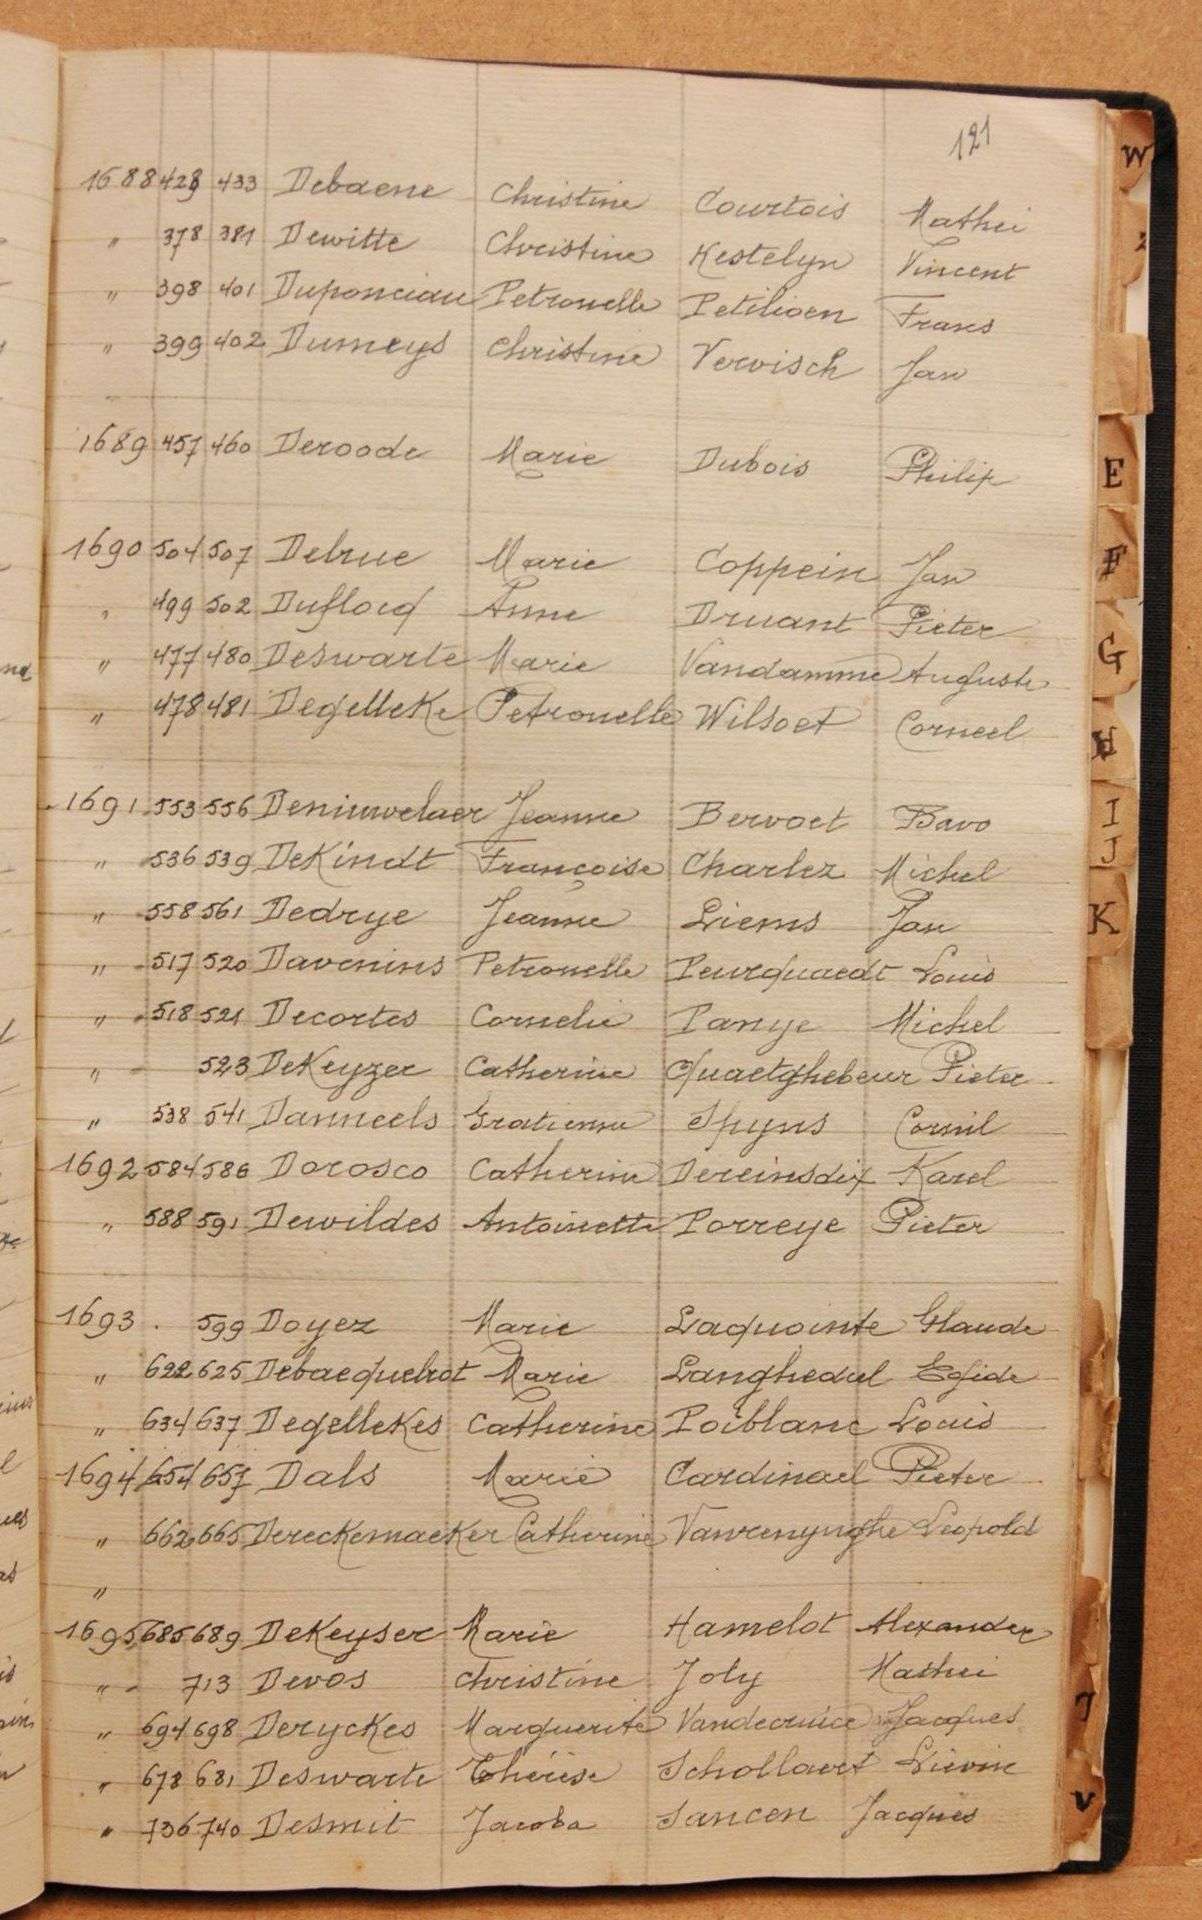 121
1688 429 433 Debaene Christine Courtois Mathei
" 378 381 Dewitte Christine Kestelyn Vincent
" 398 401 Duponciau Petronelle Petilioen Frans
" 399 402 Dumeys Christine Vervisch Jan
1689 457 460 Deroode Marie Dubois Philip
1690 504 507 Delrue Marie Coppein Jan
" 499 502 Duflocq Anne Druant Pieter
" 477 480 Deswarte Marie Vandamme Auguste
" 478 481 Degelleke Petronelle Wilsoet Corneel
1691 553 556 Deniuwelaer Jeanne Bervoet Bavo
" 536 539 DeKindt Françoise Charlez Michel
" 558 561 Dedrye Jeanne Liems Jan
" 517 520 Davenins Petronelle Peurquaedt Louis
" 518 521 Decortes Cornelie Panye Michel
" 523 DeKeyzer Catherine Quaetghebeur Pieter
" 538 541 Danneels Gratienne Spyns Cornil
1692 584 586 Dorosco Catherine Dereinsdix Karel
" 588 591 Dewildes Antoinette Porreye Pieter
1693 . 599 Doyez Marie Laquointe Glaude
" 622 625 Debacquelrot Marie Langhedul Egide
" 634 637 Degellekes Catherine Poiblanc Louis
1694 654 657 Dals Marie Cardinael Pieter
" 662 665 Dereckemaeker Catherine Vanrenynghe Leopold
"
1695 685 689 DeKeyser Marie Hamelot Alexander
" 713 Devos Christine Joly Mathei
" 694 698 Deryckes Marguerite Vandecruice Jacques
" 678 681 Deswarte Thérèse Schollaert Lievine
" 736 740 Desmit Jacoba Sancen Jacques
W
E
F
G
H
I
J
K
V